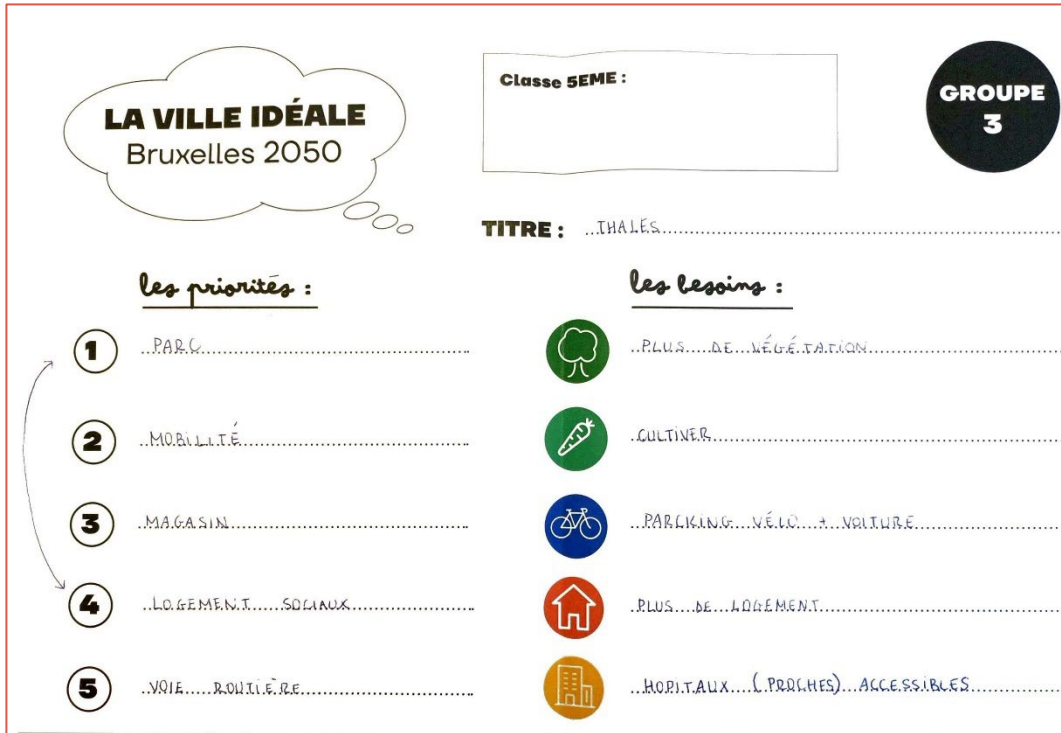 LA VILLE IDÉALE
Bruxelles 2050
Classe 5EME :
GROUPE
3
TITRE : THALES
les priorités :
1 PARC
2 MOBILITÉ
3 MAGASIN
4 LOGEMENT SOCIAUX
5 VOIE ROUTIÈRE
les besoins :
PLUS DE VÉGÉTATION
CULTIVER
PARCKING VÉLO + VOITURE
PLUS DE LOGEMENT
HOPITAUX (PROCHES) ACCESSIBLES